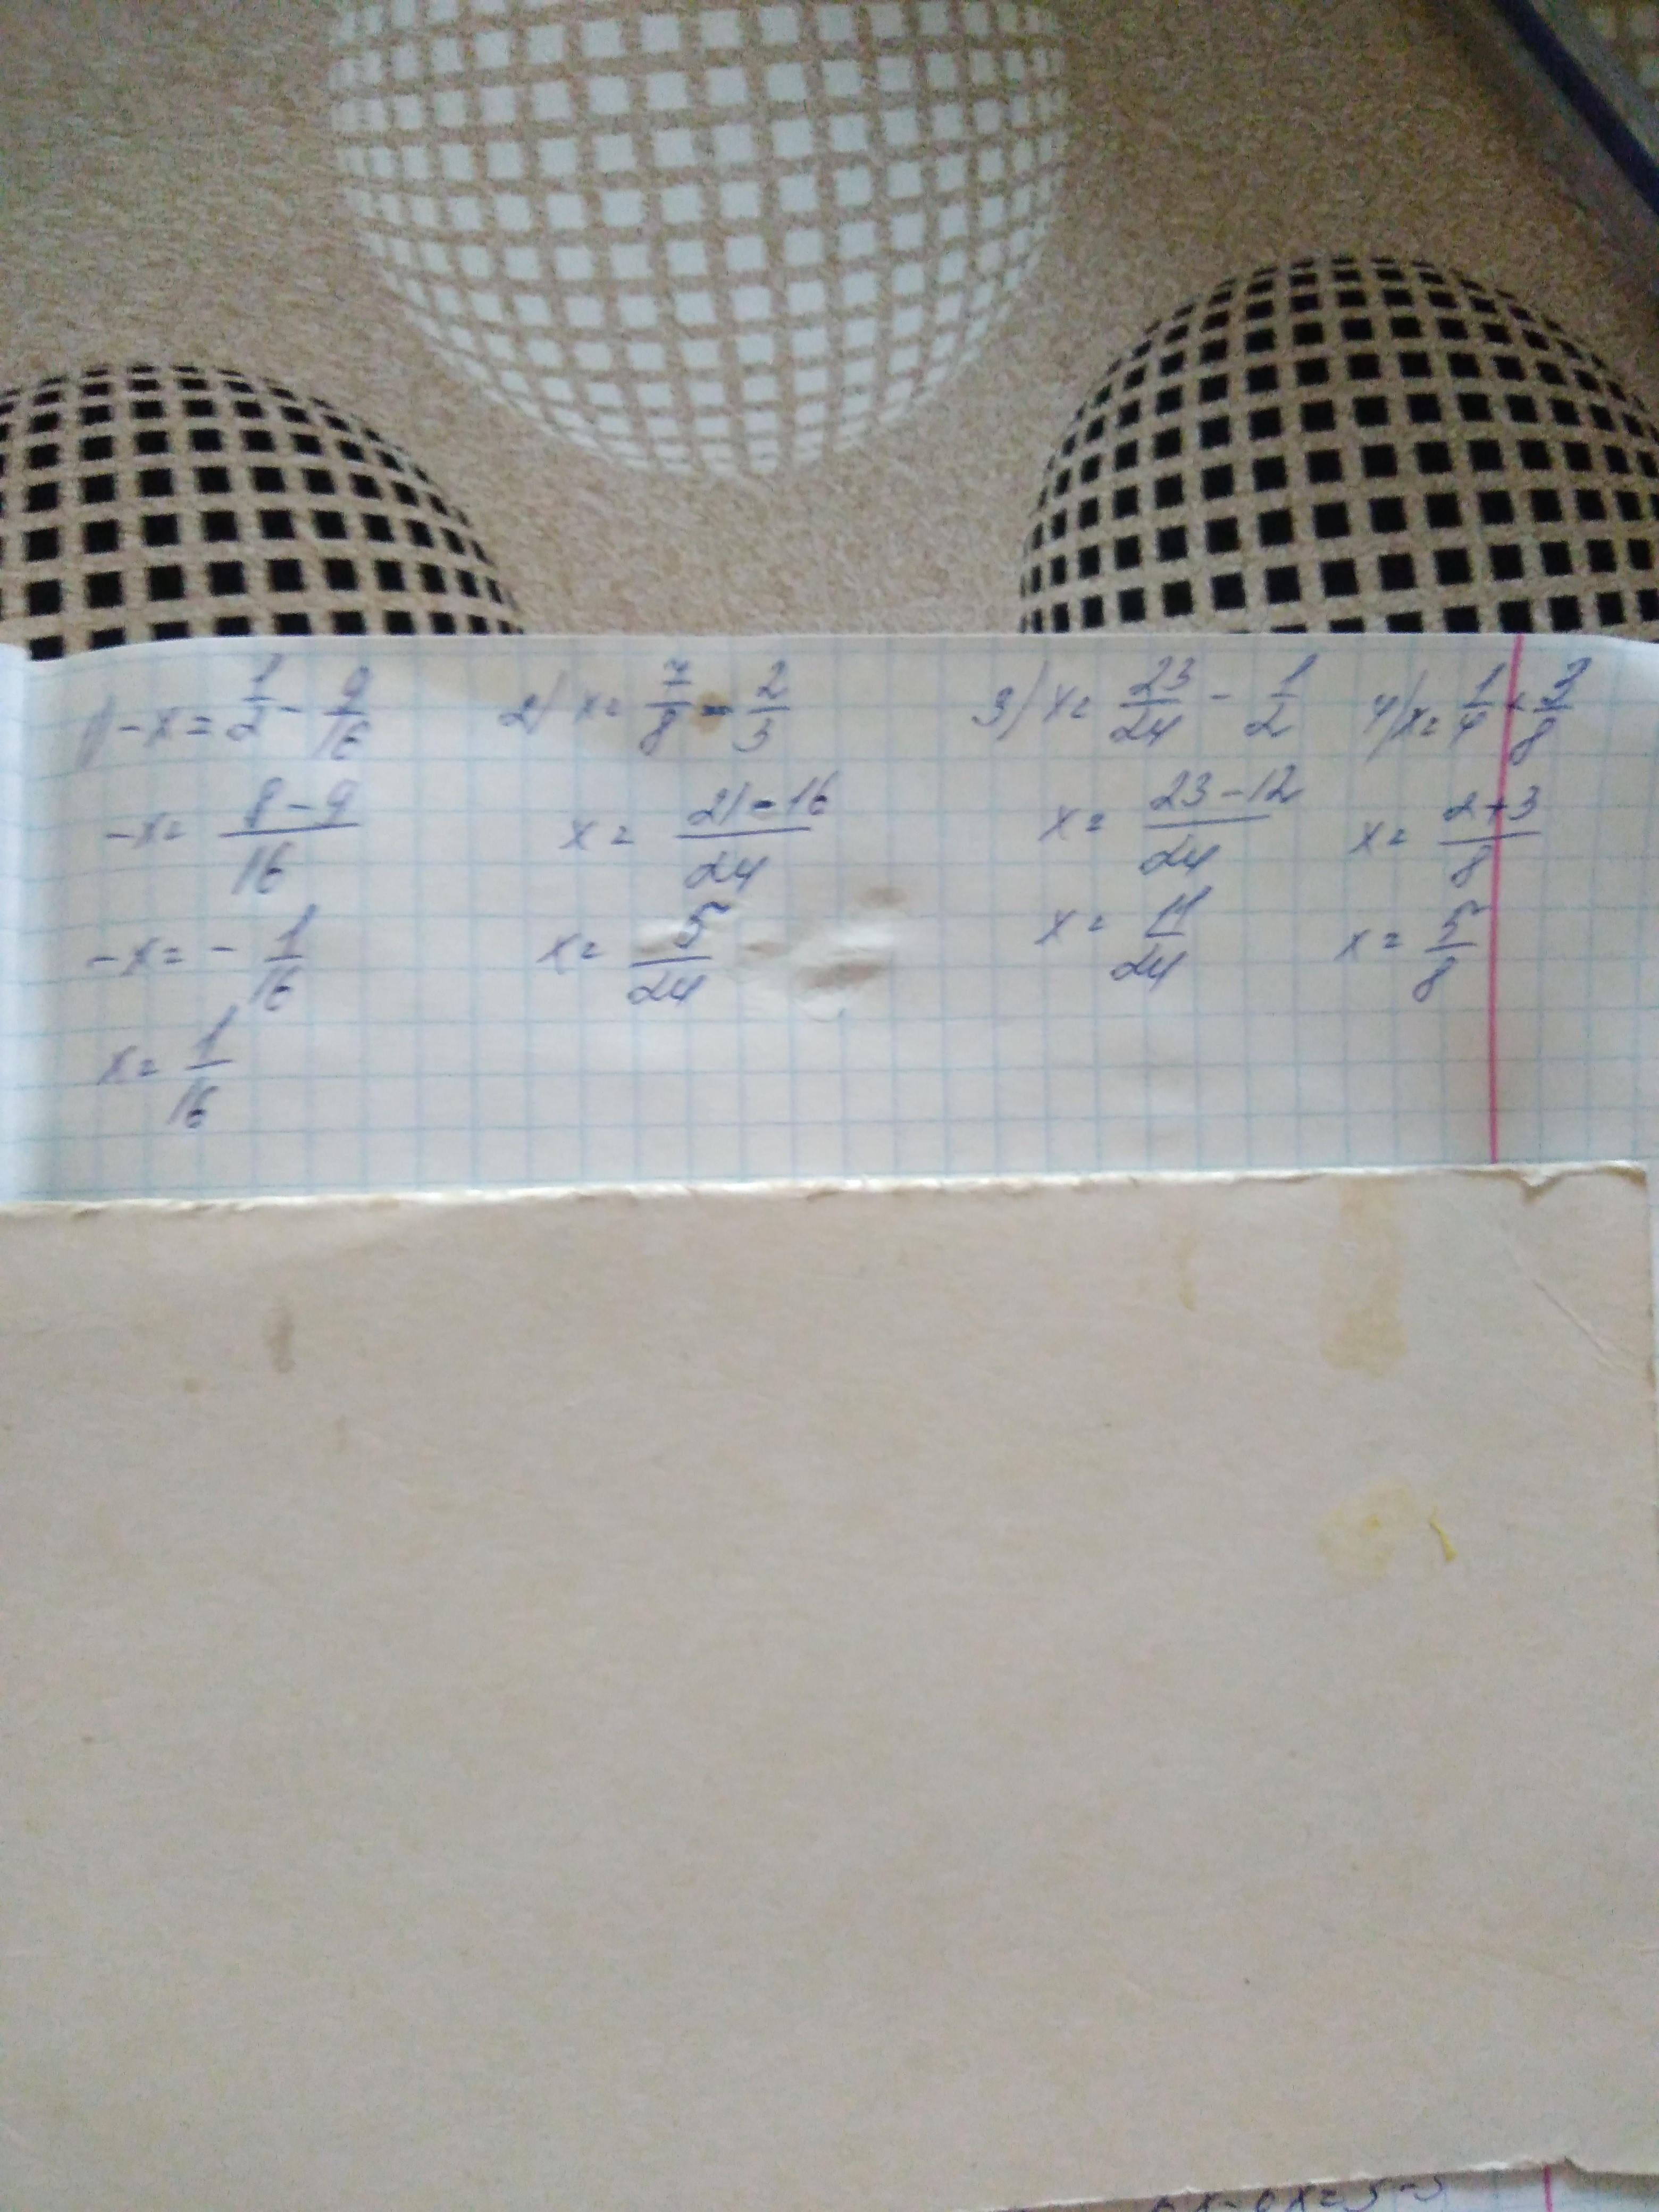 1) -x = 1/2 - 9/16
-x = (8-9)/16
-x = - 1/16
x = 1/16
2) x = 7/8 - 2/3
x = (21-16)/24
x = 5/24
3) x = 23/24 - 1/2
x = (23-12)/24
x = 11/24
4) x = 1/4 + 3/8
x = (2+3)/8
x = 5/8